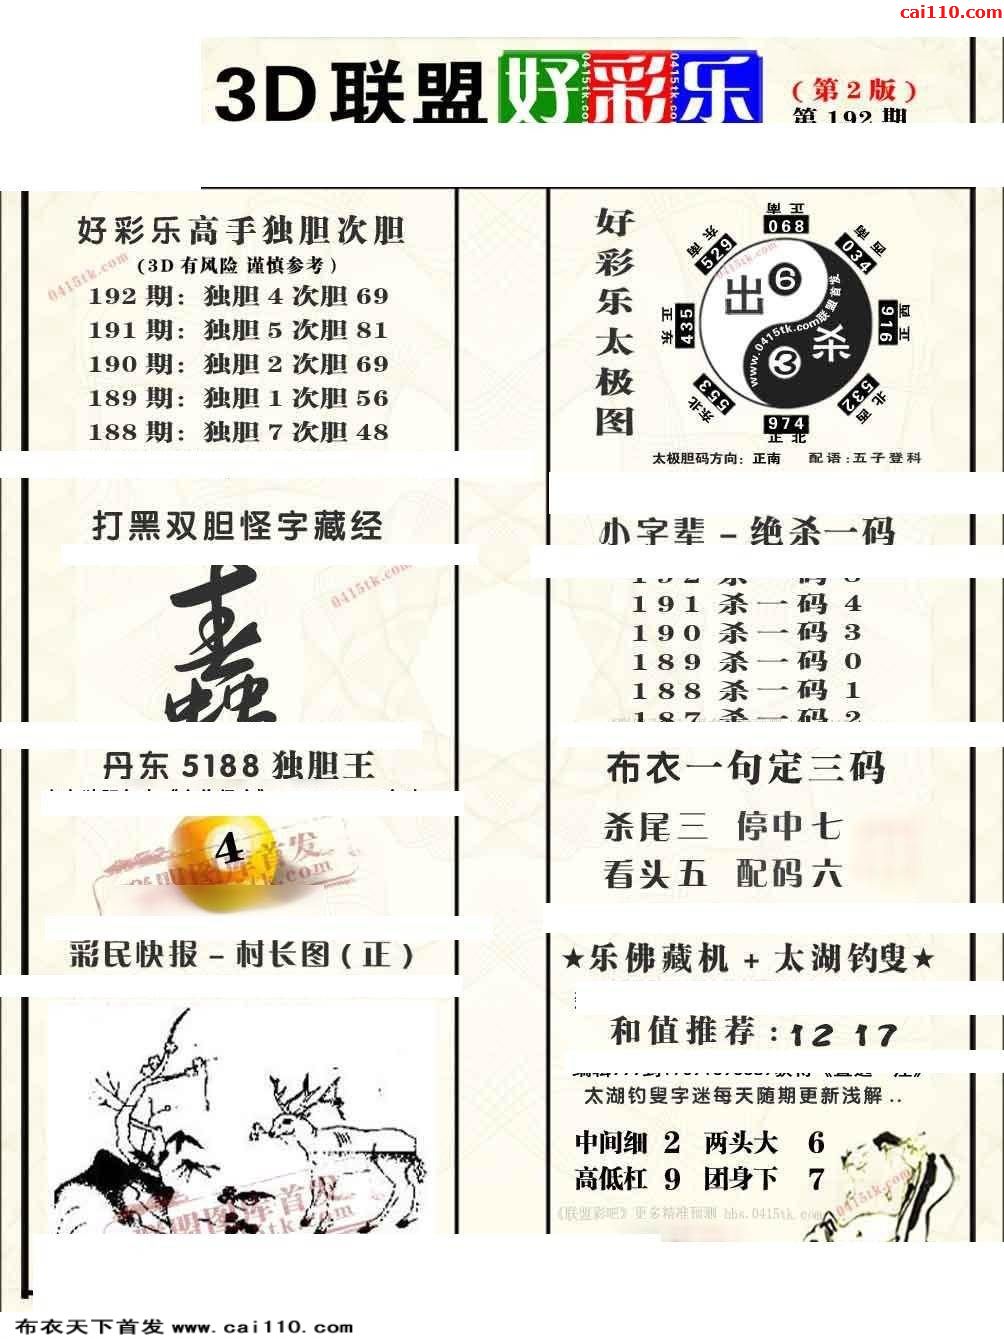 cai110.com
3D联盟 好彩乐
(第2版)
第192期
好彩乐高手独胆次胆
(3D有风险 谨慎参考)
192期: 独胆4次胆69
191期: 独胆5次胆81
190期: 独胆2次胆69
189期: 独胆1次胆56
188期: 独胆7次胆48
好彩乐太极图
正南 068
西南 034
西正 916
西北 532
正北 974
东北 553
正东 435
东南 529
出 6
杀 3
www.0415tk.com联盟首发
太极胆码方向: 正南 配语:五子登科
打黑双胆怪字藏经
小字辈-绝杀一码
191杀一码4
190杀一码3
189杀一码0
188杀一码1
187杀一码2
丹东5188独胆王
4
布衣一句定三码
杀尾三 停中七
看头五 配码六
彩民快报-村长图(正)
★乐佛藏机+太湖钓叟★
和值推荐:12 17
太湖钓叟字迷每天随期更新浅解..
中间细 2 两头大 6
高低杠 9 团身下 7
《联盟彩吧》更多精准预测 bbs.0415tk.com
0415tk.com
布衣天下首发 www.cai110.com